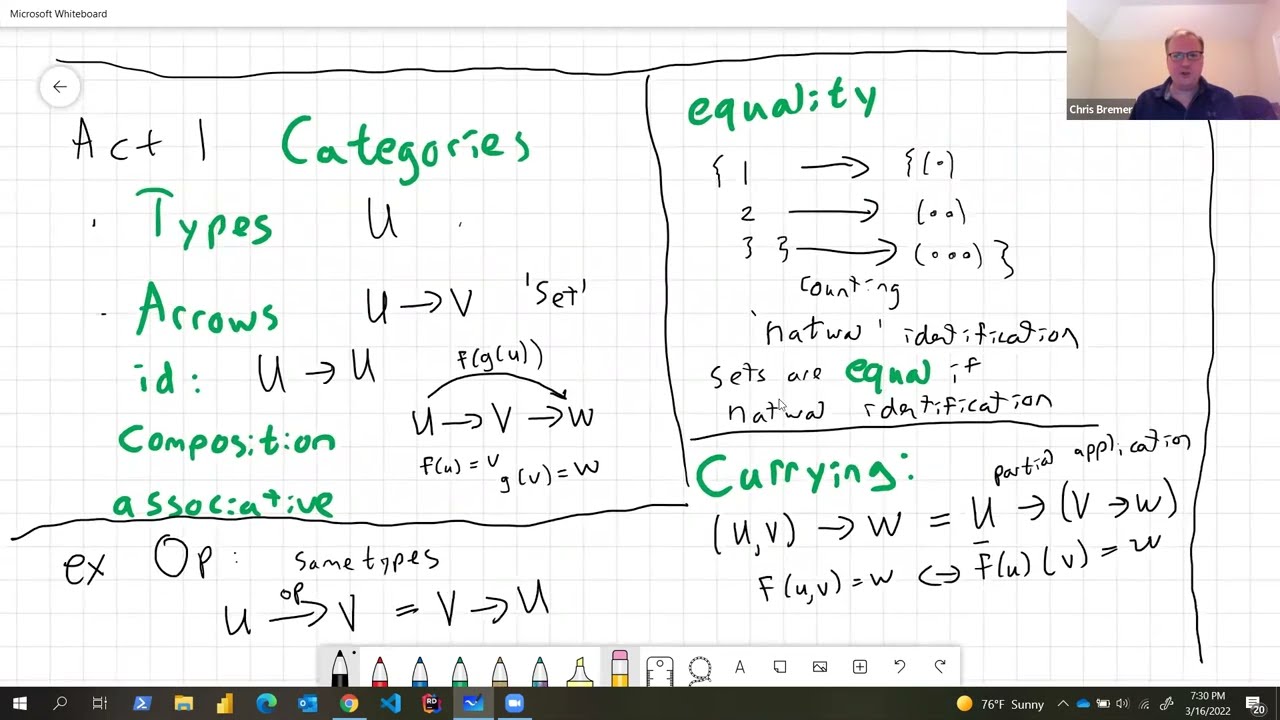 Microsoft Whiteboard
Chris Bremer
Act 1 Categories
Types U
Arrows U → V 'Set'
id: U → U
f(g(u))
U → V → W
f(u) = v
g(v) = w
Composition
associative
ex Op: same types
U op→ V = V → U
equality
{ 1 → {(•)
2 → (••)
3 } → (•••) }
counting
'natural' identification
sets are equal if
natural identification
Currying:
partial application
(U,V) → W = U → (V → W)
f(u,v) = w ↔ f(u)(v) = w
A
RD
76°F Sunny
7:30 PM
3/16/2022
20